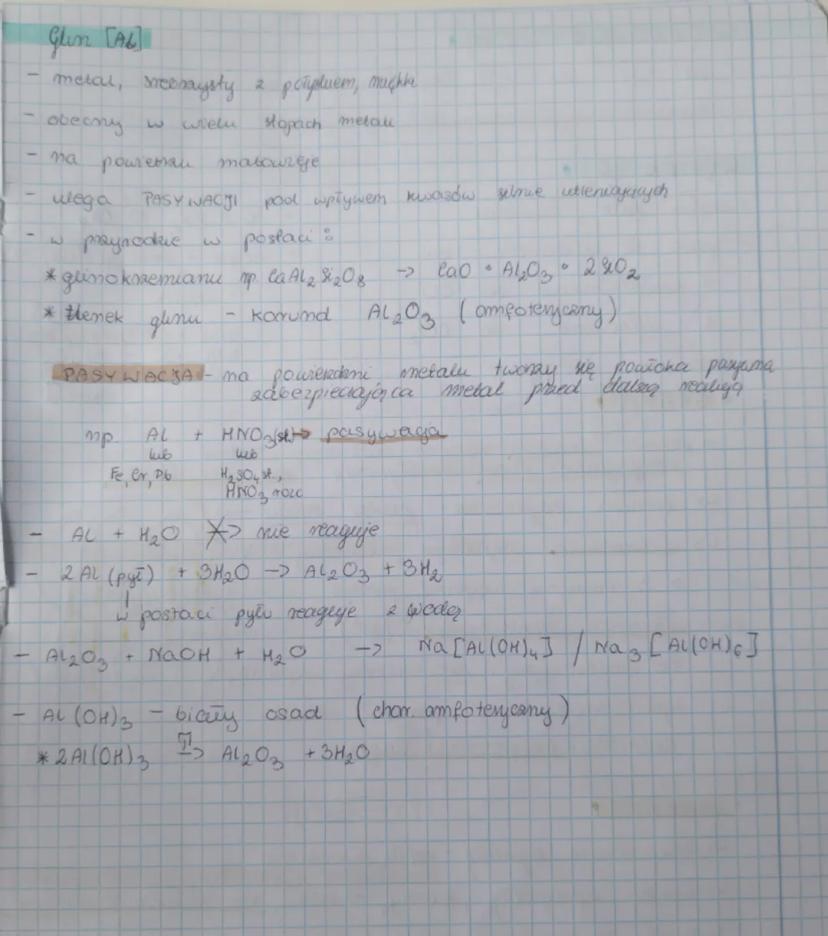 Glin [Al]
- metal, srebrzysty z połyskiem, miękki
- obecny w wielu stopach metali
- na powietrzu matowieje
- ulega PASYWACJI pod wpływem kwasów silnie utleniających
- w przyrodzie w postaci :
* glinokrzemianu np. CaAl2Si2O8 -> CaO • Al2O3 • 2SiO2
* tlenek glinu - korund Al2O3 (amfoteryczny)
PASYWACJA - na powierzchni metalu tworzy się powłoka pasywna
zabezpieczająca metal przed dalszą reakcją
np. Al + HNO3(st.) -> pasywacja
lub lub
Fe, Cr, Pb H2SO4 st.,
HNO3 rozc
- Al + H2O -> nie reaguje
- 2Al (pył) + 3H2O -> Al2O3 + 3H2
w postaci pyłu reaguje z wodą
- Al2O3 + NaOH + H2O -> Na[Al(OH)4] / Na3[Al(OH)6]
- Al(OH)3 - biały osad (char. amfoteryczny)
* 2Al(OH)3 T-> Al2O3 + 3H2O